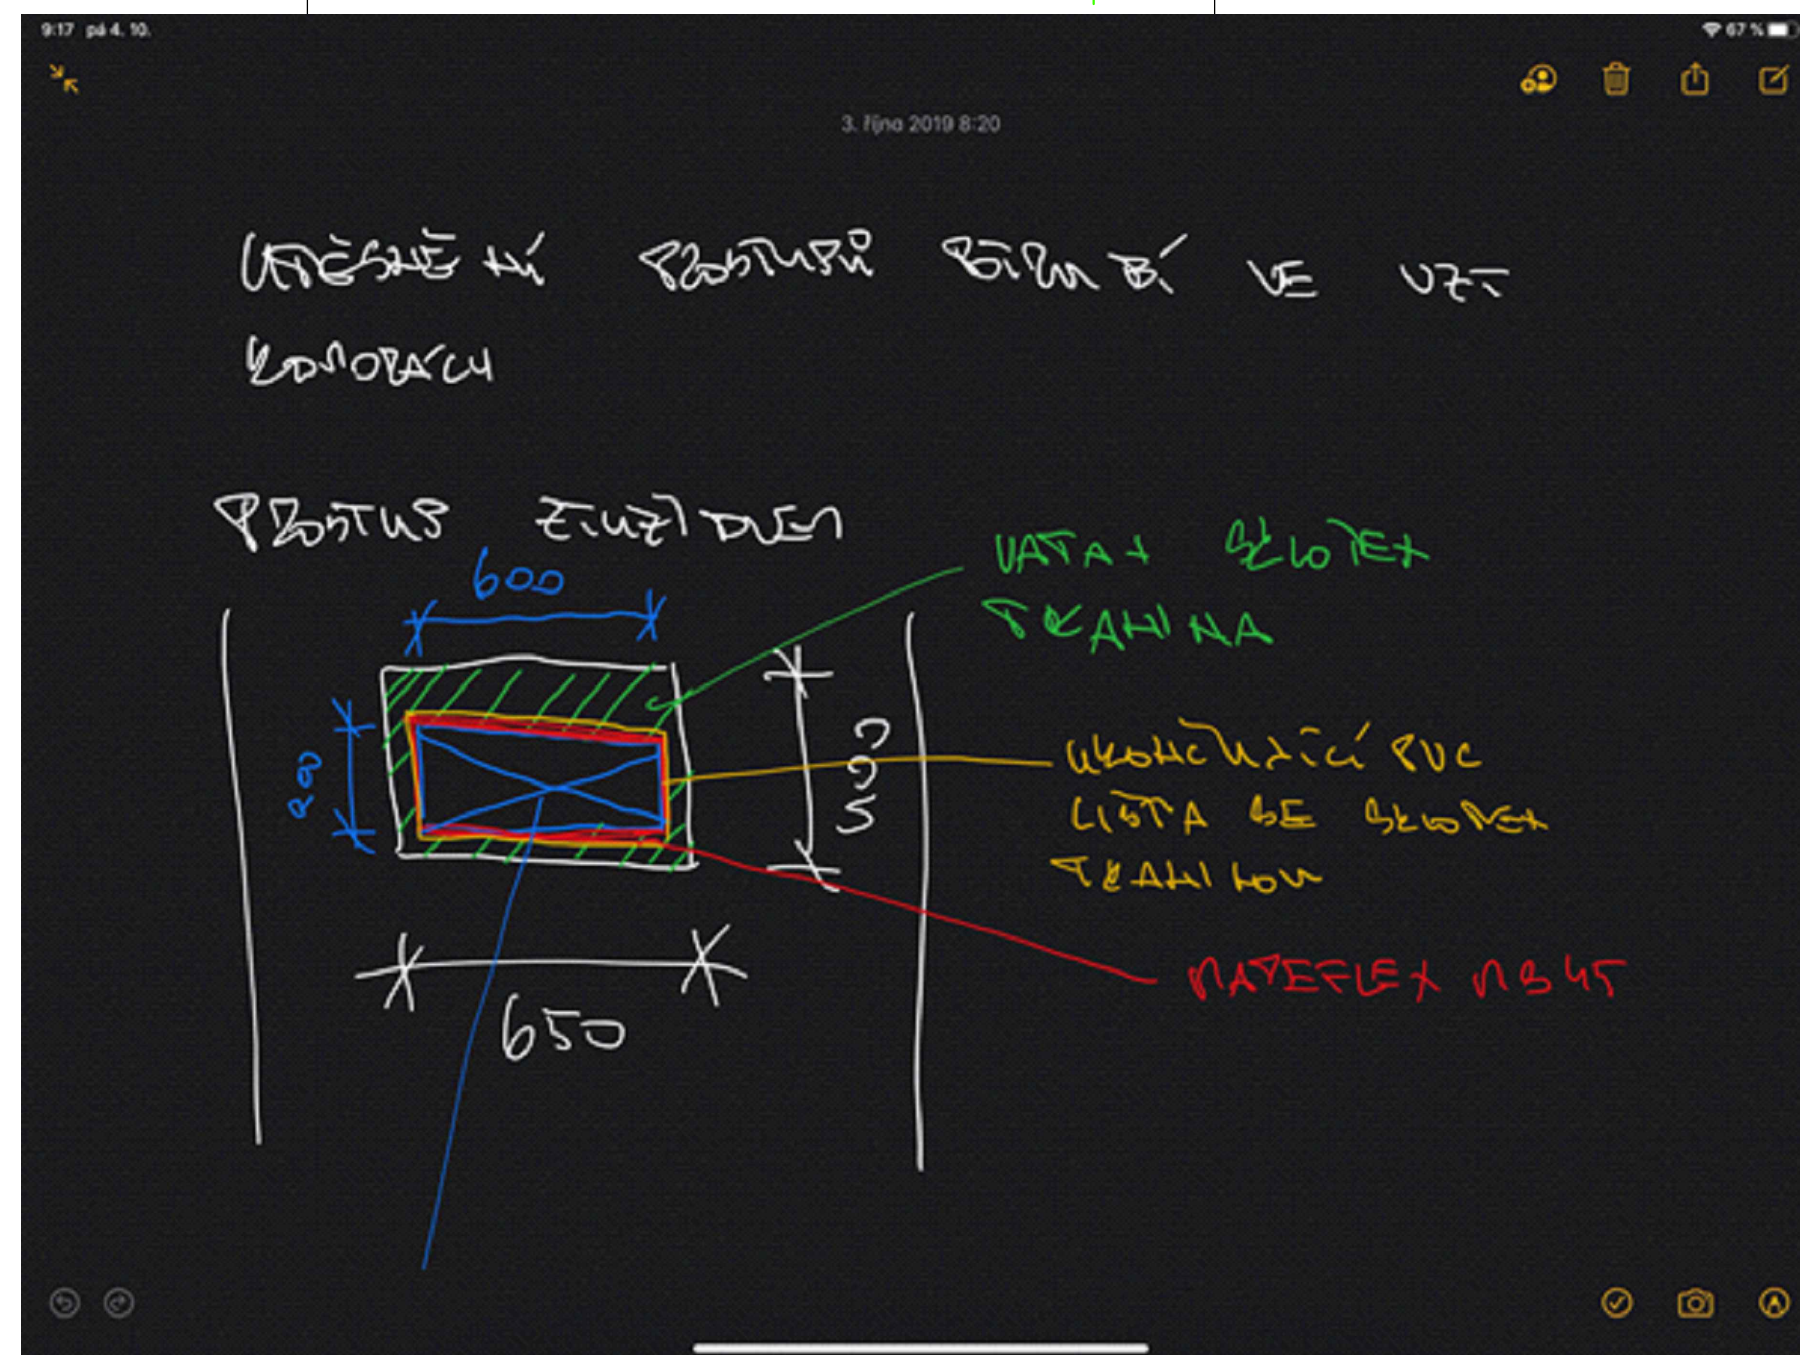 9:17 pá 4. 10.
67 %
3. října 2019 8:20
UTĚSNĚNÍ PROSTUPŮ POTRUBÍ VE VZT
KOMORÁCH
PROSTUP
600
VATA + SKLOTEX
TKANINA
200
500
UKONČUJÍCÍ PVC
LIŠTA SE SKLOTEX
TKANINOU
MAPEFLEX MS45
650